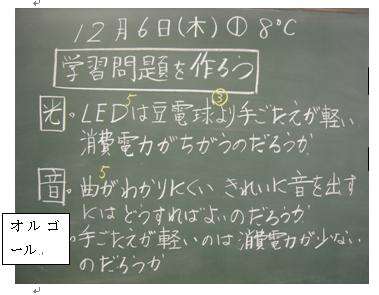 12月6日(木) ① 8℃
学習問題を作ろう
光 。LEDは豆電球より手ごたえが軽い
5 ③
消費電力がちがうのだろうか
音 。曲がわかりにくい きれいに音を出す
5
にはどうすればよいのだろうか
。手ごたえが軽いのは消費電力が少ない
のだろうか
オルゴ
ール